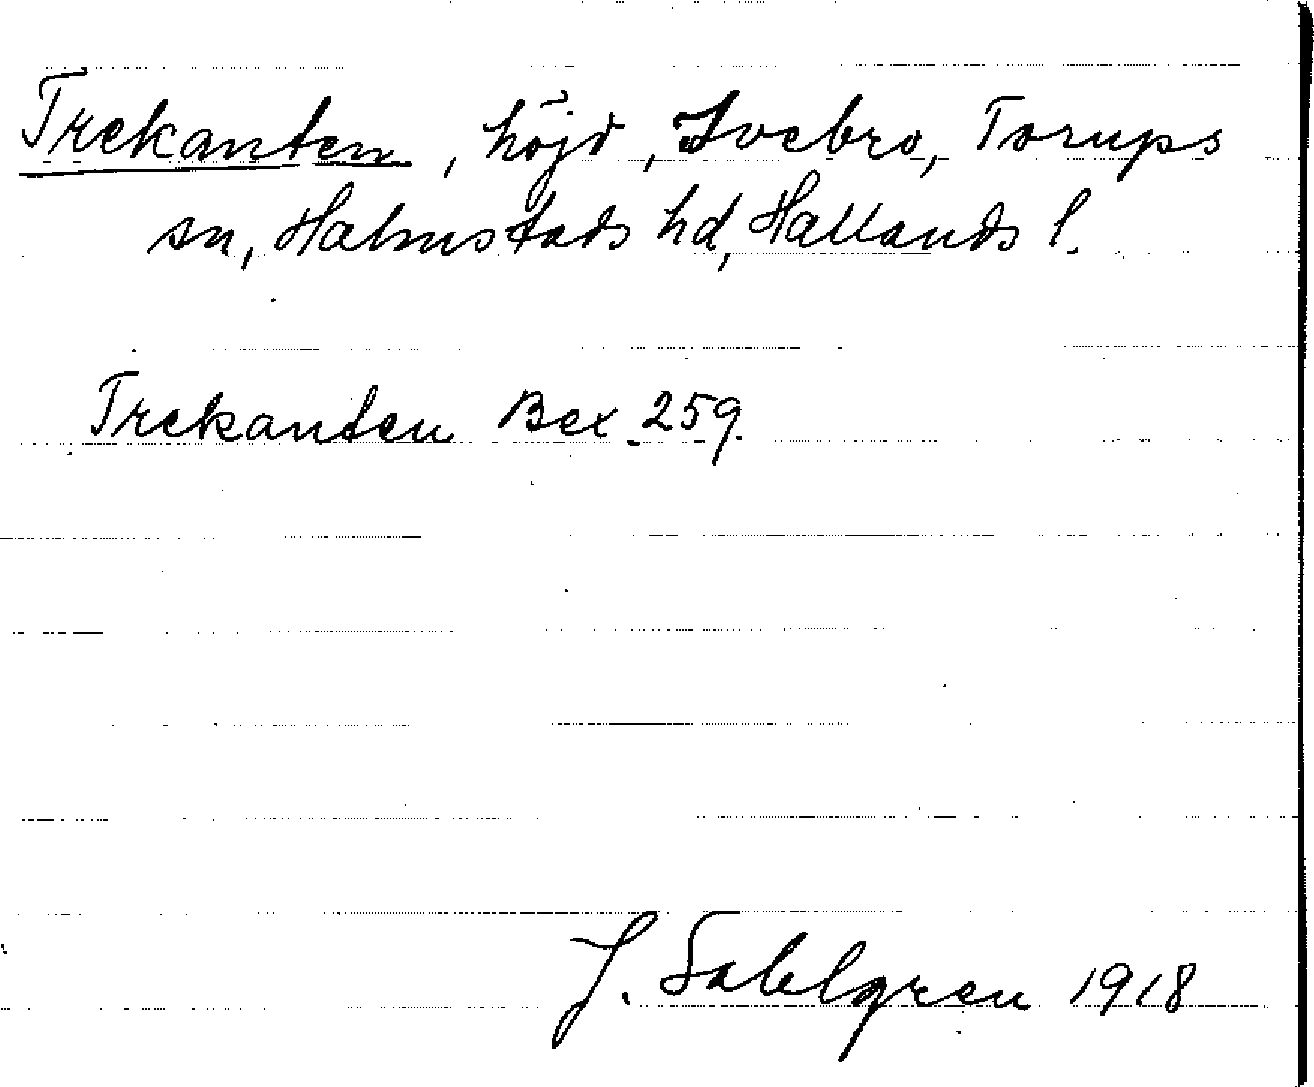 Trekanten, höjd, Svebro, Torups
sn, Halmstads hd, Hallands l.
Trekanten Bex 259.
J. Sahlgren 1918